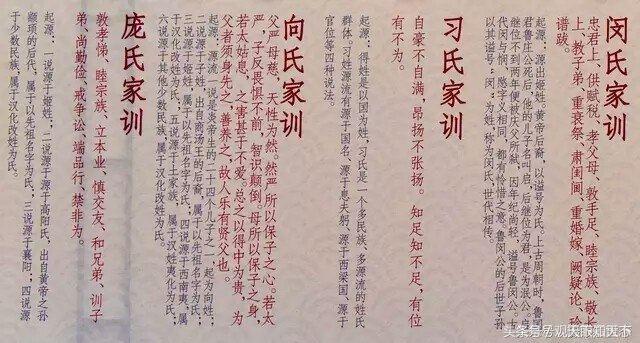 闵氏家训
忠君上、供赋税、孝父母、敦手足、睦宗族、敬长
上、教子弟、重丧祭、肃闺阃、重婚嫁、阙疑论、玲
谱跋。
起源：源出姬姓。黄帝后裔，以谥号为氏。上古周朝时、鲁国
君鲁庄公死后，他的儿子名叫启，后继位为君，是为泯公。
继位不到两年便被庆父所弑，因年纪尚轻，谥号鲁闵公。
代闵与悯、愍字义相同，都有怜惜之意，鲁闵公的后世子孙
以其谥号：闵，为姓，称为闵氏，世代相传。
习氏家训
自豪不自满，昂扬不张扬。知足知不足，有位
有不为。
起源：得姓是以国为姓，习氏是一个多民族、多源流的姓氏
群体。习姓源流有源于国名、源于息夫躬、源于西梁国、源于
官位等四种说法。
向氏家训
父严母慈，天性为然。然严所以保子之心。若太
严，子反畏惧不前，智识颠倒。母所以保子之身，
若太姑息，之害甚于不爱。总之以得中为贵，为
父者须身先之，善养之，故人乐有贤父也。
起源：源流一说是炎帝生的二十四个儿子之一，起为向姓；
二说源于子姓，出自商汤王的后裔，属于以先祖名字为氏；
三说源于姬姓，属于以先祖名字为氏；四说源于西南夷，属
于汉化改姓为氏，五说源于土家族，属于汉姓夷化为氏；
六说源于其他少数民族，属于汉化改姓为氏。
庞氏家训
敦孝悌、睦宗族、立本业、慎交友、和兄弟、训子
弟、尚勤俭、戒争讼、端品行、禁非为。
起源：一说源于姬姓；二说源于高阳氏，出自黄帝之孙
颛顼的后代，属于以先祖名字为氏；三说源于襄阳；四说源
于少数民族，属于汉化改姓为氏。